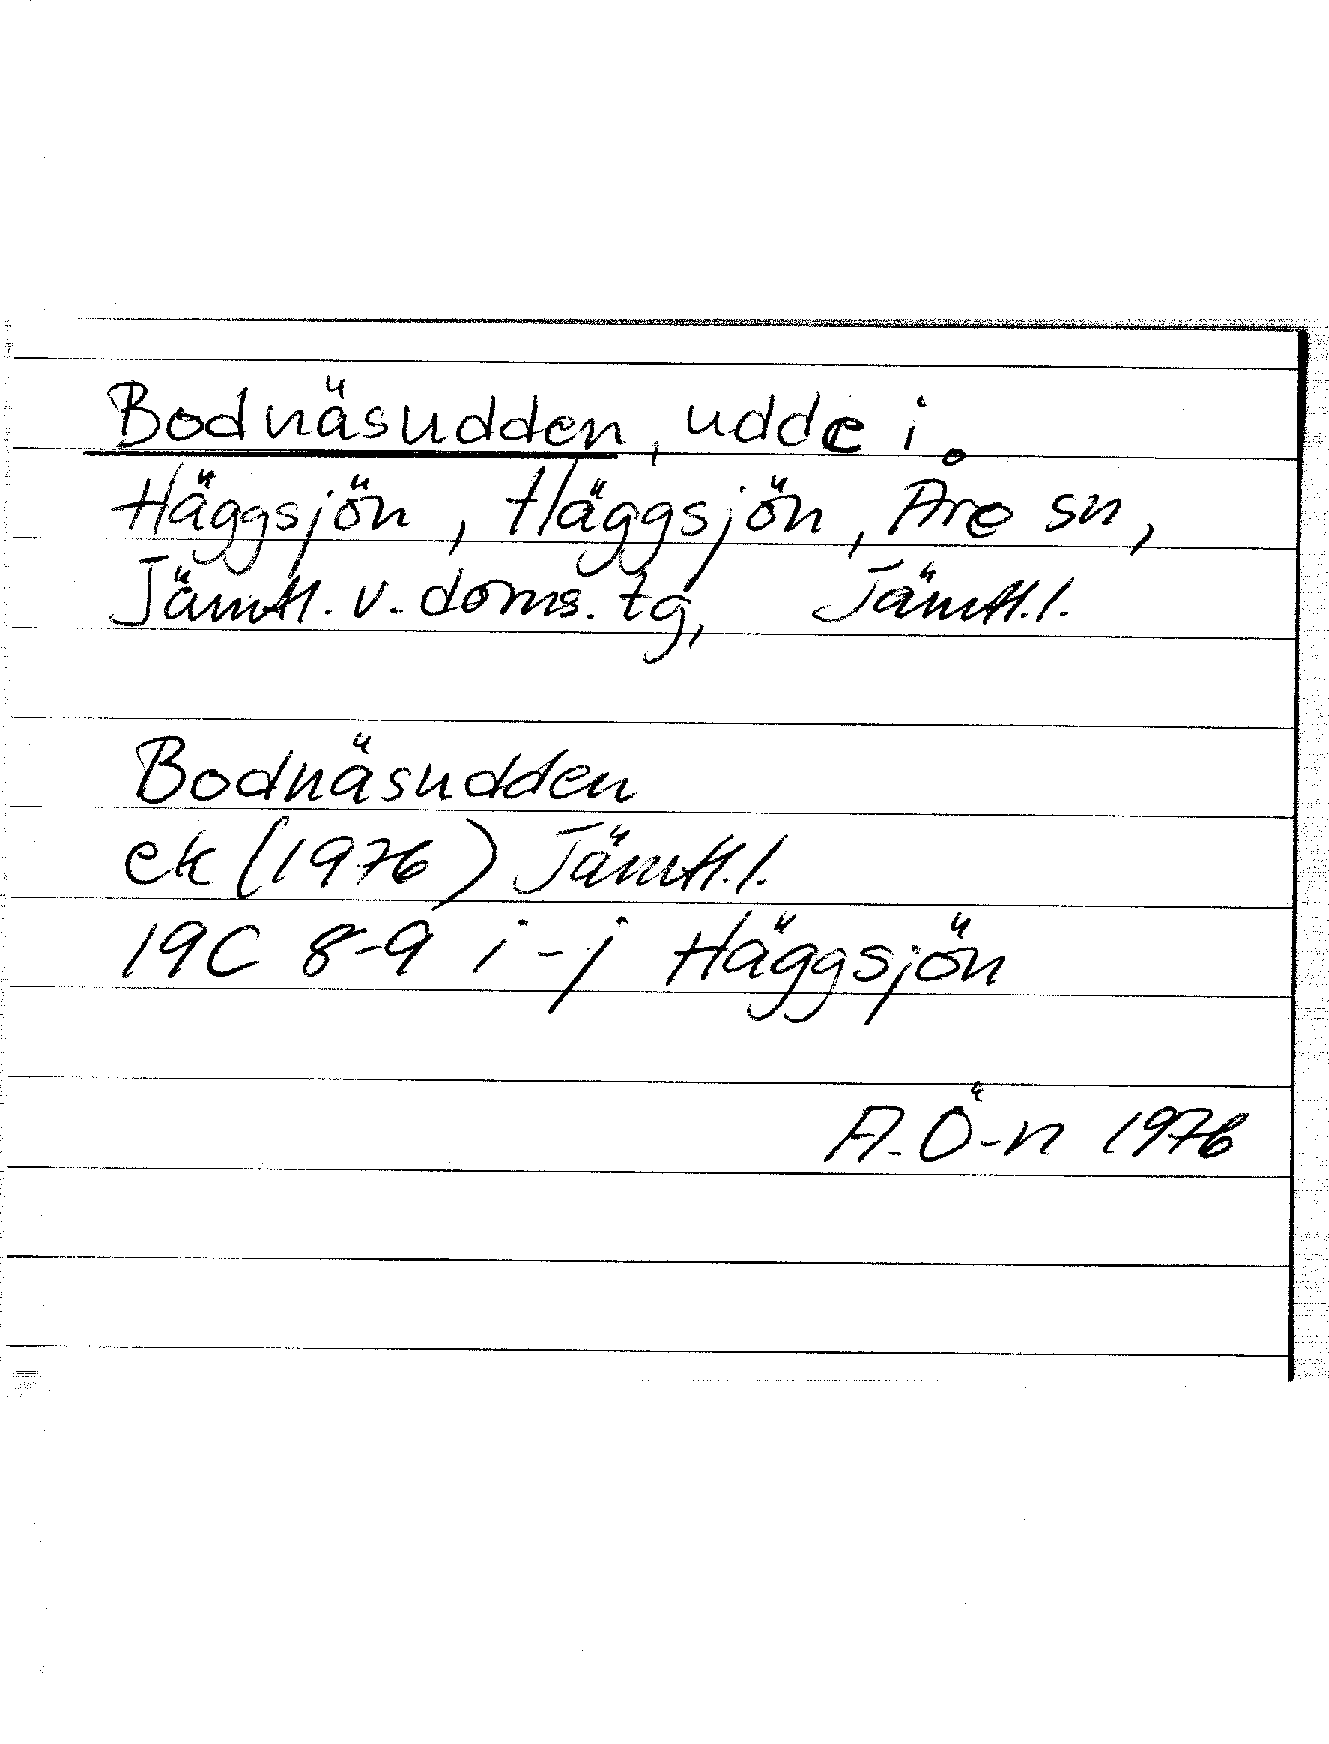 Bodnäsudden, udde i
Häggsjön, Häggsjön, Åre sn,
Jämtl. v. doms. tg, Jämtl.l.
Bodnäsudden
ek (1976) Jämtl.l.
19C 8-9 i-j Häggsjön
A. Ö-n 1976